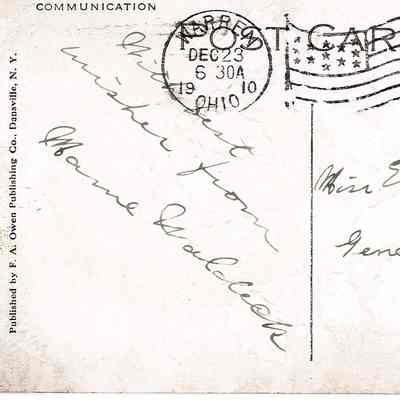 COMMUNICATION
POST CAR
WARREN
DEC 23
6 30A
19 10
OHIO
With best
wishes from
Mame Waldeck
Miss E
Gene
Published by F. A. Owen Publishing Co., Dansville, N. Y.